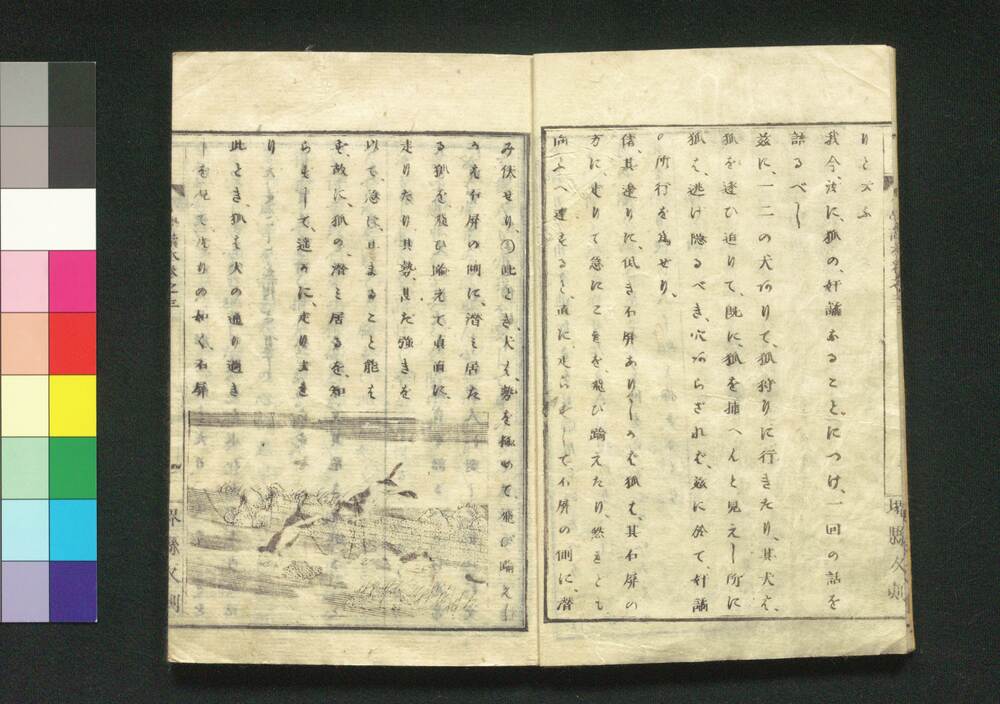 りと云ふ
我今、茲に、狐の、奸譎あることにつけ、一回の話を
語るべし
茲に、一二の犬ありて、狐狩りに行きたり、其犬は、
狐を逐ひ迫りて、既に、狐を捕へんと見えし所に
狐は、逃け隠るべき、穴あらざれば、茲に於て、奸譎
の所行を為せり、
偖、其邊りに、低き石屏ありしかば狐は、其石屏の
方に、走りて急にこれを、飛び踰えたり、然れども
向ふへ達するも、直に、走らずして、石屏の側に、潜
み伏せり、此とき、犬は、勢を極めて、飛び踰えし
かば石屏の側に、潜み居た
る狐を、飛び踰えて真直に、
走りたり其勢、甚た強きを
以て、急に、止まること能は
ず、故に、狐の、潜み居るを、知
らずして、遥かに、走り去き
り
此とき、狐は犬の通り過き
しを見て、後りの如く石屏
小學讀本巻之三
堺縣文刻
堺縣文刻